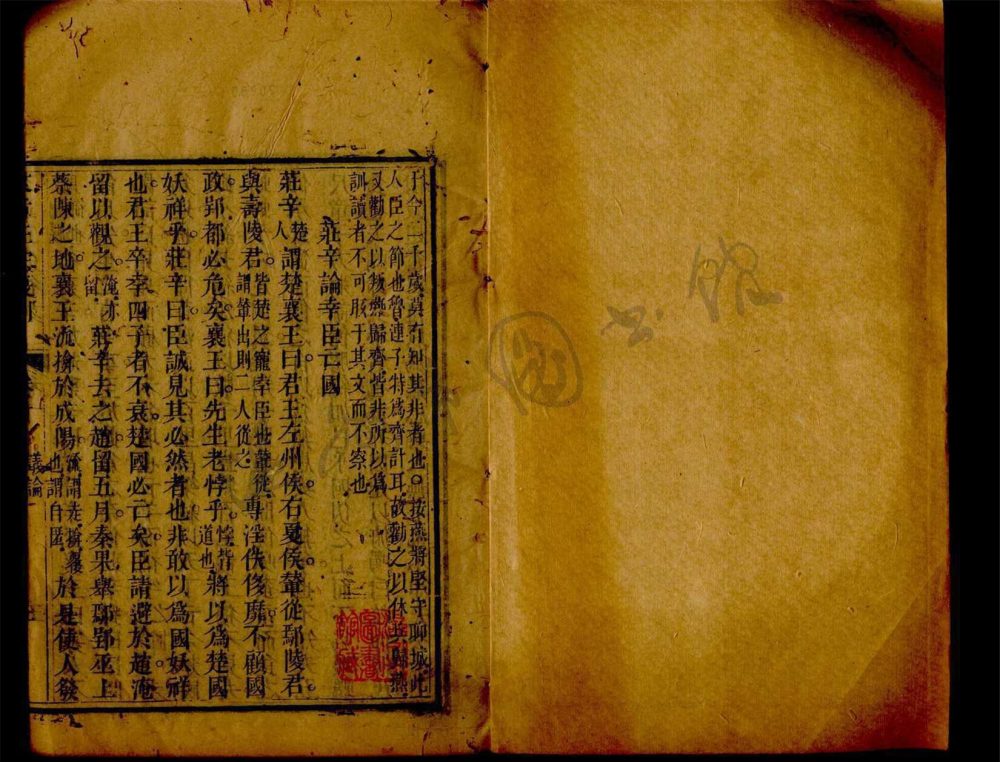 于今二千歲莫有知其非者也○按燕將堅守聊城此
人臣之節也魯連子特爲齊計耳故勸之以休兵歸燕
又勸之以叛燕歸齊皆非所以爲
訓讀者不可取于其文而不察也
莊辛論幸臣亡國
莊辛楚人謂楚襄王曰君王左州侯右夏侯輦從鄢陵君
與壽陵君皆楚之寵幸臣也輦從謂輦出則二人從之專淫佚侈靡不顧國
政郢都必危矣襄王曰先生老悖乎悖背道也將以爲楚國
妖祥乎莊辛曰臣誠見其必然者也非敢以爲國妖祥
也君王卒幸四子者不衰楚國必亡矣臣請避於趙淹
留以觀之淹亦留莊辛去之趙留五月秦果舉鄢郢巫上
蔡陳之地襄王流揜於成陽流謂走揜覆也謂自匿於是使人發
議論